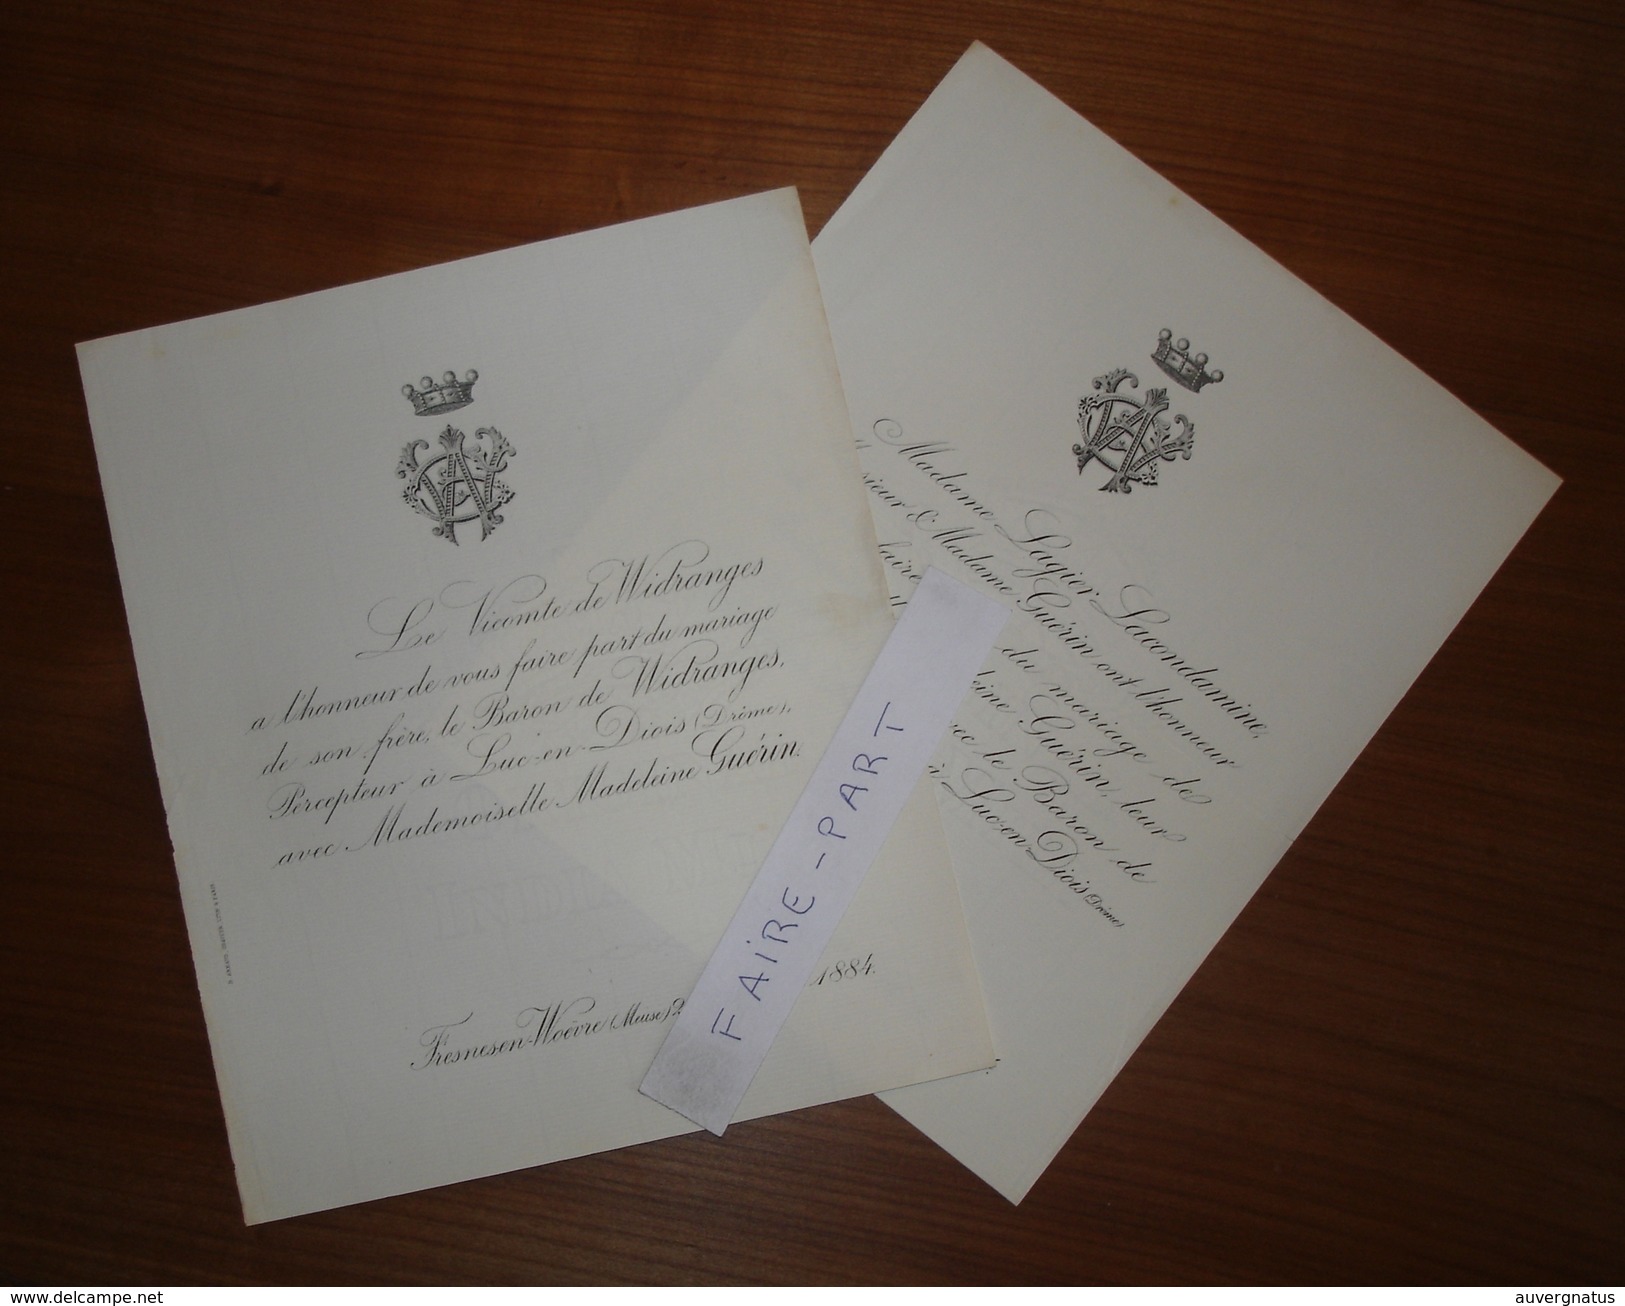 Le Vicomte de Widranges
a l'honneur de vous faire part du mariage
de son frère, le Baron de Widranges,
Percepteur à Luc-en-Diois (Drôme),
avec Mademoiselle Madeleine Guérin.
Fresnes en-Woëvre (Meuse) 2
1884.
Madame Lagier Lacondamine,
sieur & Madame Guérin ont l'honneur
faire
du mariage de
leine Guérin, leur
avec le Baron de
à Luc-en-Diois (Drôme)
FAIRE-PART
www.delcampe.net
auvergnatus